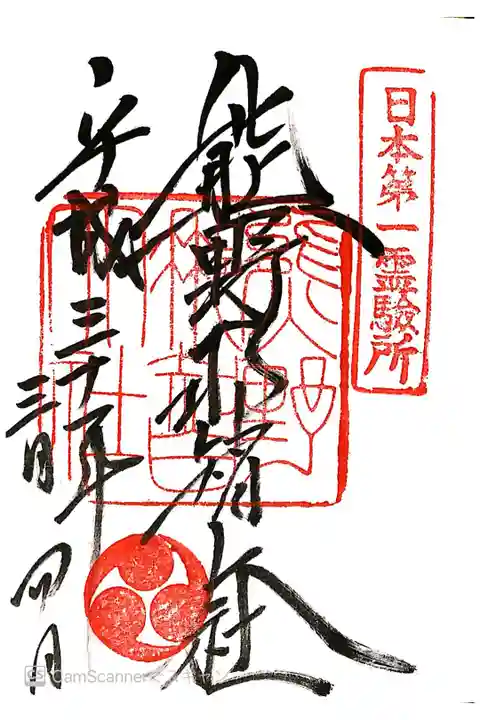 日本第一霊験所
熊野那智大社
熊野
那智
大社
平成三十一年
四月
三日
CamScanner